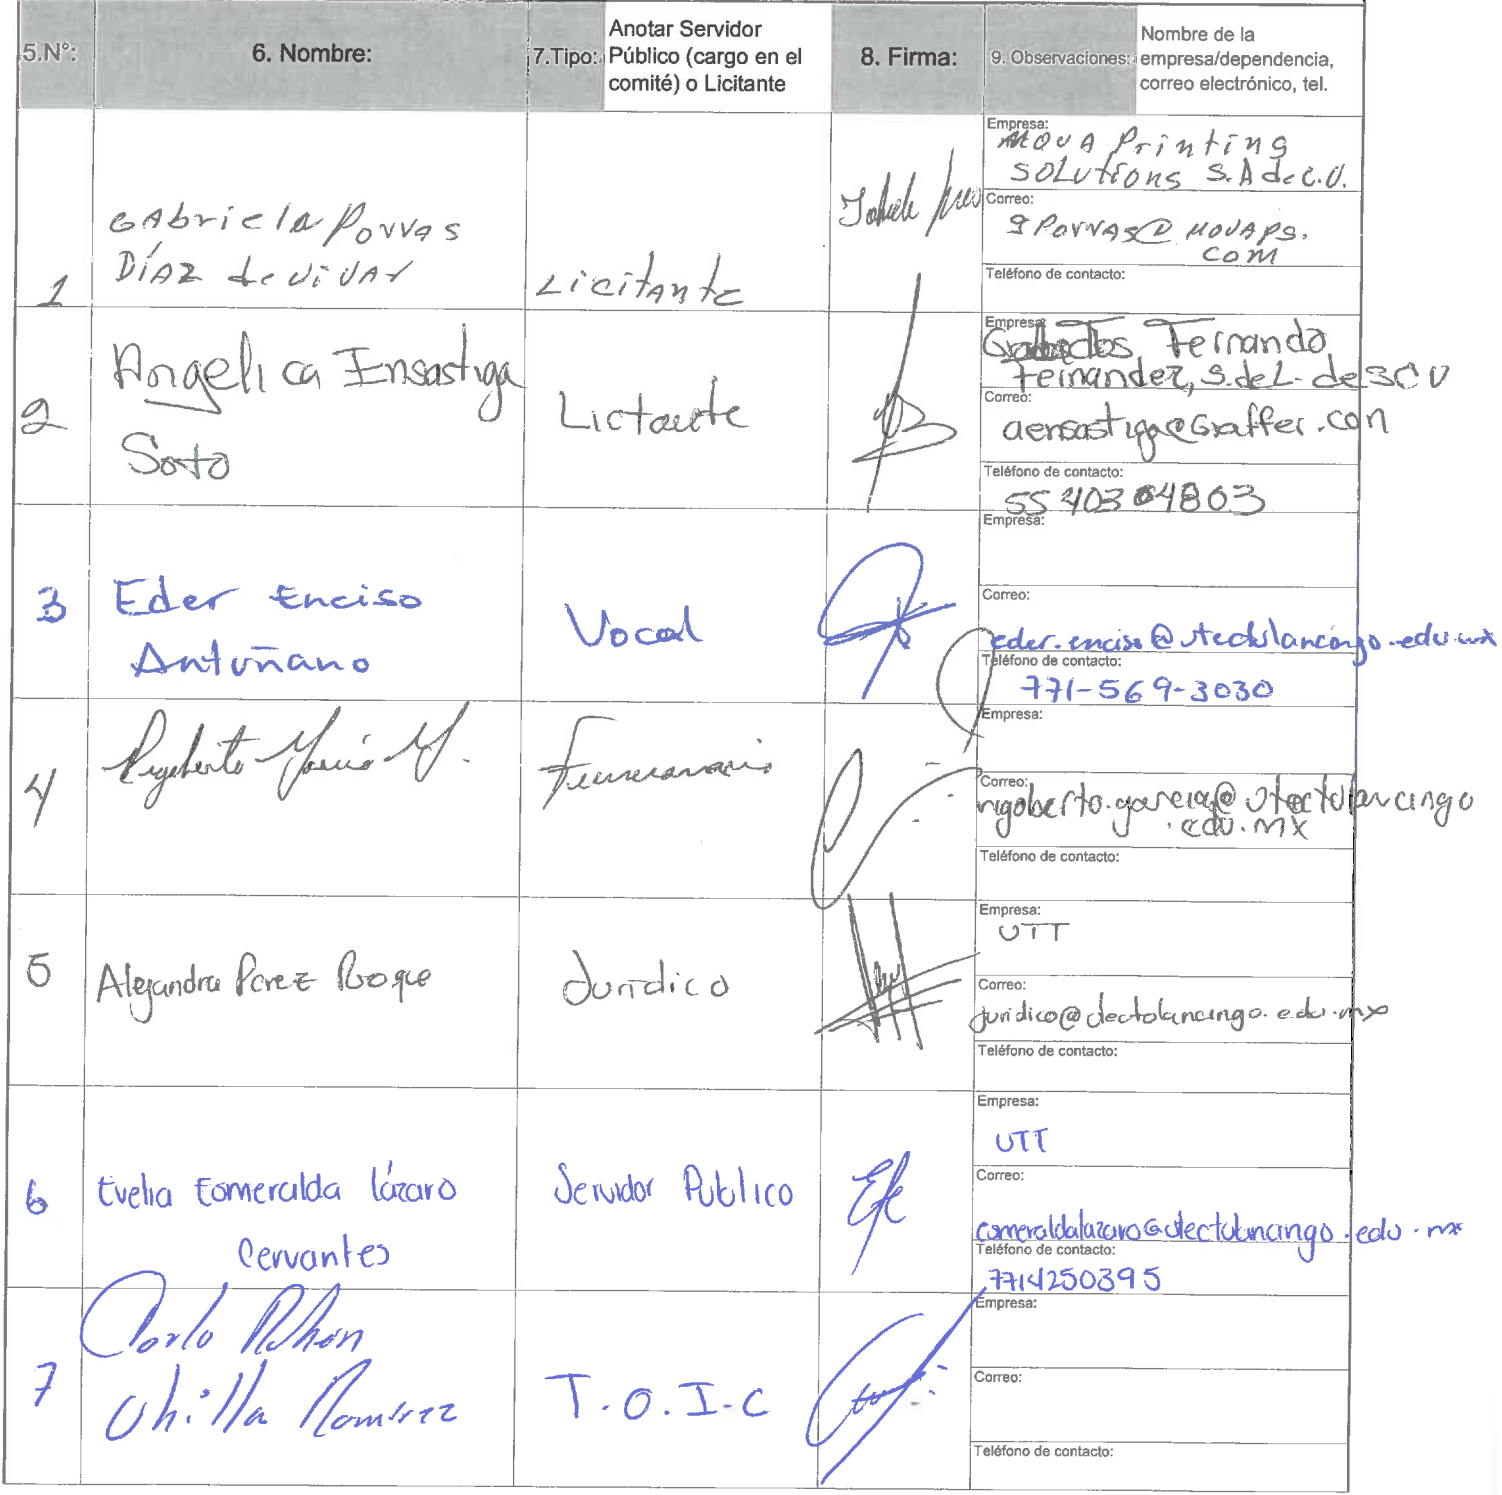 5.N°:
6. Nombre:
7.Tipo:
Anotar Servidor
Público (cargo en el
comité) o Licitante
8. Firma:
9. Observaciones:
Nombre de la
empresa/dependencia,
correo electrónico, tel.
1
GAbriela Porras
DÍAZ de ViVAr
Licitante
Empresa:
NOVA Printing
SOLUtions S.A de C.V.
Correo:
gPorrAs@novAps.
com
Teléfono de contacto:
2
Angelica Ensastiga
Soto
Lictante
Empresa:
Grabados Fernando
Fernandez, S.deL. de
Correo:
aensastiga@Graffer.com
Teléfono de contacto:
55 403 04803
3
Eder Enciso
Antuñano
Vocal
Empresa:
Correo:
eder.enciso@utectulancingo.edu.mx
Teléfono de contacto:
771-569-3030
4
Rigoberto García M.
Empresa:
Correo:
rigoberto.garcia@utectulancingo
.edu.mx
Teléfono de contacto:
5
Alejandra Perez Roque
Juridico
Empresa:
UTT
Correo:
juridico@utectulancingo.edu.mx
Teléfono de contacto:
6
Evelia Esmeralda lázaro
Cervantes
Servidor Publico
Empresa:
UTT
Correo:
esmeraldalazaro@utectulancingo.edu.mx
Teléfono de contacto:
7714250395
7
Carlo
Uhilla Ramirez
T.O.I.C
Empresa:
Correo:
Teléfono de contacto: